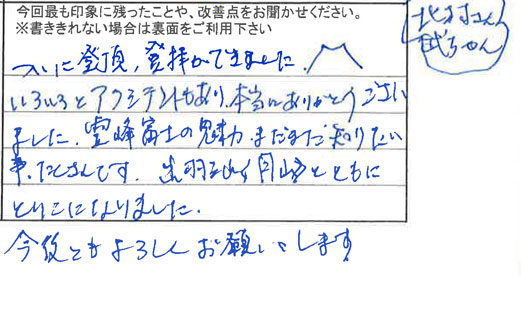 今回最も印象に残ったことや、改善点をお聞かせください。
※書ききれない場合は裏面をご利用下さい
ついに登頂，登拝ができました．
いろいろとアクシデントもあり、本当にありがとうござい
ました．霊峰富士の魅力．まだまだ知りたい
事、たくさんです．出羽三山 月山とともに
とりこになりました．
今後ともよろしくお願いします